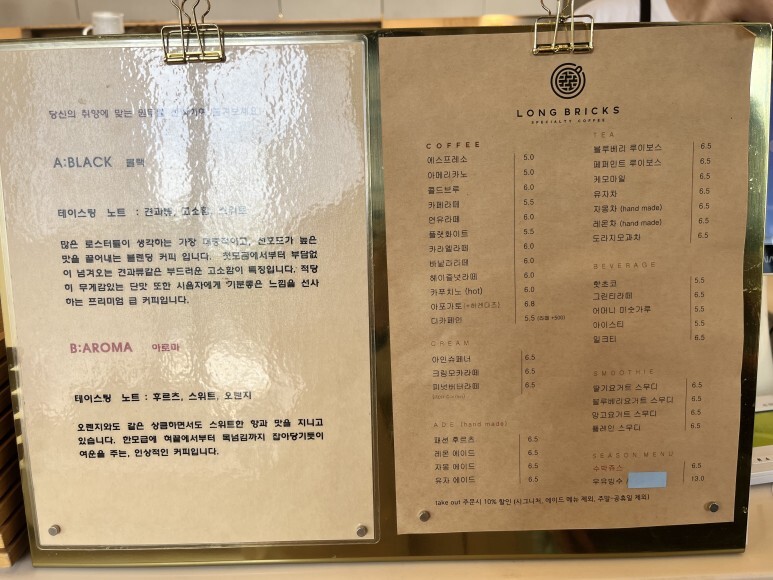 당신의 취향에 맞는 원두를
A:BLACK 블랙
테이스팅 노트 : 견과류, 고소함, 스위트
많은 로스터들이 생각하는 가장 대중적이고, 선호도가 높은
맛을 끌어내는 블렌딩 커피 입니다. 첫모금에서부터 부담없
이 넘겨오는 견과류같은 부드러운 고소함이 특징입니다. 적당
히 무게감있는 단맛 또한 시음자에게 기분좋은 느낌을 선사
하는 프리미엄 급 커피입니다.
B:AROMA 아로마
테이스팅 노트 : 후르츠, 스위트, 오렌지
오렌지와도 같은 상큼하면서도 스위트한 향과 맛을 지니고
있습니다. 한모금에 혀끝에서부터 목넘김까지 잡아당기듯이
여운을 주는, 인상적인 커피입니다.
LONG BRICKS
SPECIALTY COFFEE
COFFEE
에스프레소 5.0
아메리카노 5.0
콜드브루 6.0
카페라떼 5.5
연유라떼 6.0
플랫화이트 5.5
카라멜라떼 6.0
바닐라라떼 6.0
헤이즐넛라떼 6.0
카푸치노 (hot) 6.0
아포가토 (+하겐다즈) 6.8
디카페인 5.5
CREAM
아인슈페너 6.5
크림모카라떼 6.5
피넛버터라떼 6.5
ADE (hand made)
패션 후르츠 6.5
레몬 에이드 6.5
자몽 에이드 6.5
유자 에이드 6.5
TEA
블루베리 루이보스 6.5
페퍼민트 루이보스 6.5
케모마일 6.5
유자차 6.5
자몽차 (hand made) 6.5
레몬차 (hand made) 6.5
도라지모과차 6.5
BEVERAGE
핫초코 5.5
그린티라떼 6.5
어머니 미숫가루 5.5
아이스티 5.5
밀크티 6.5
SMOOTHIE
딸기요거트 스무디 6.5
블루베리요거트 스무디 6.5
망고요거트 스무디 6.5
플레인 스무디 6.5
SEASON MENU
수박쥬스 6.5
우유빙수 / 13.0
take out 주문시 10% 할인 (시그니처, 에이드 메뉴 제외, 주말~공휴일 제외)